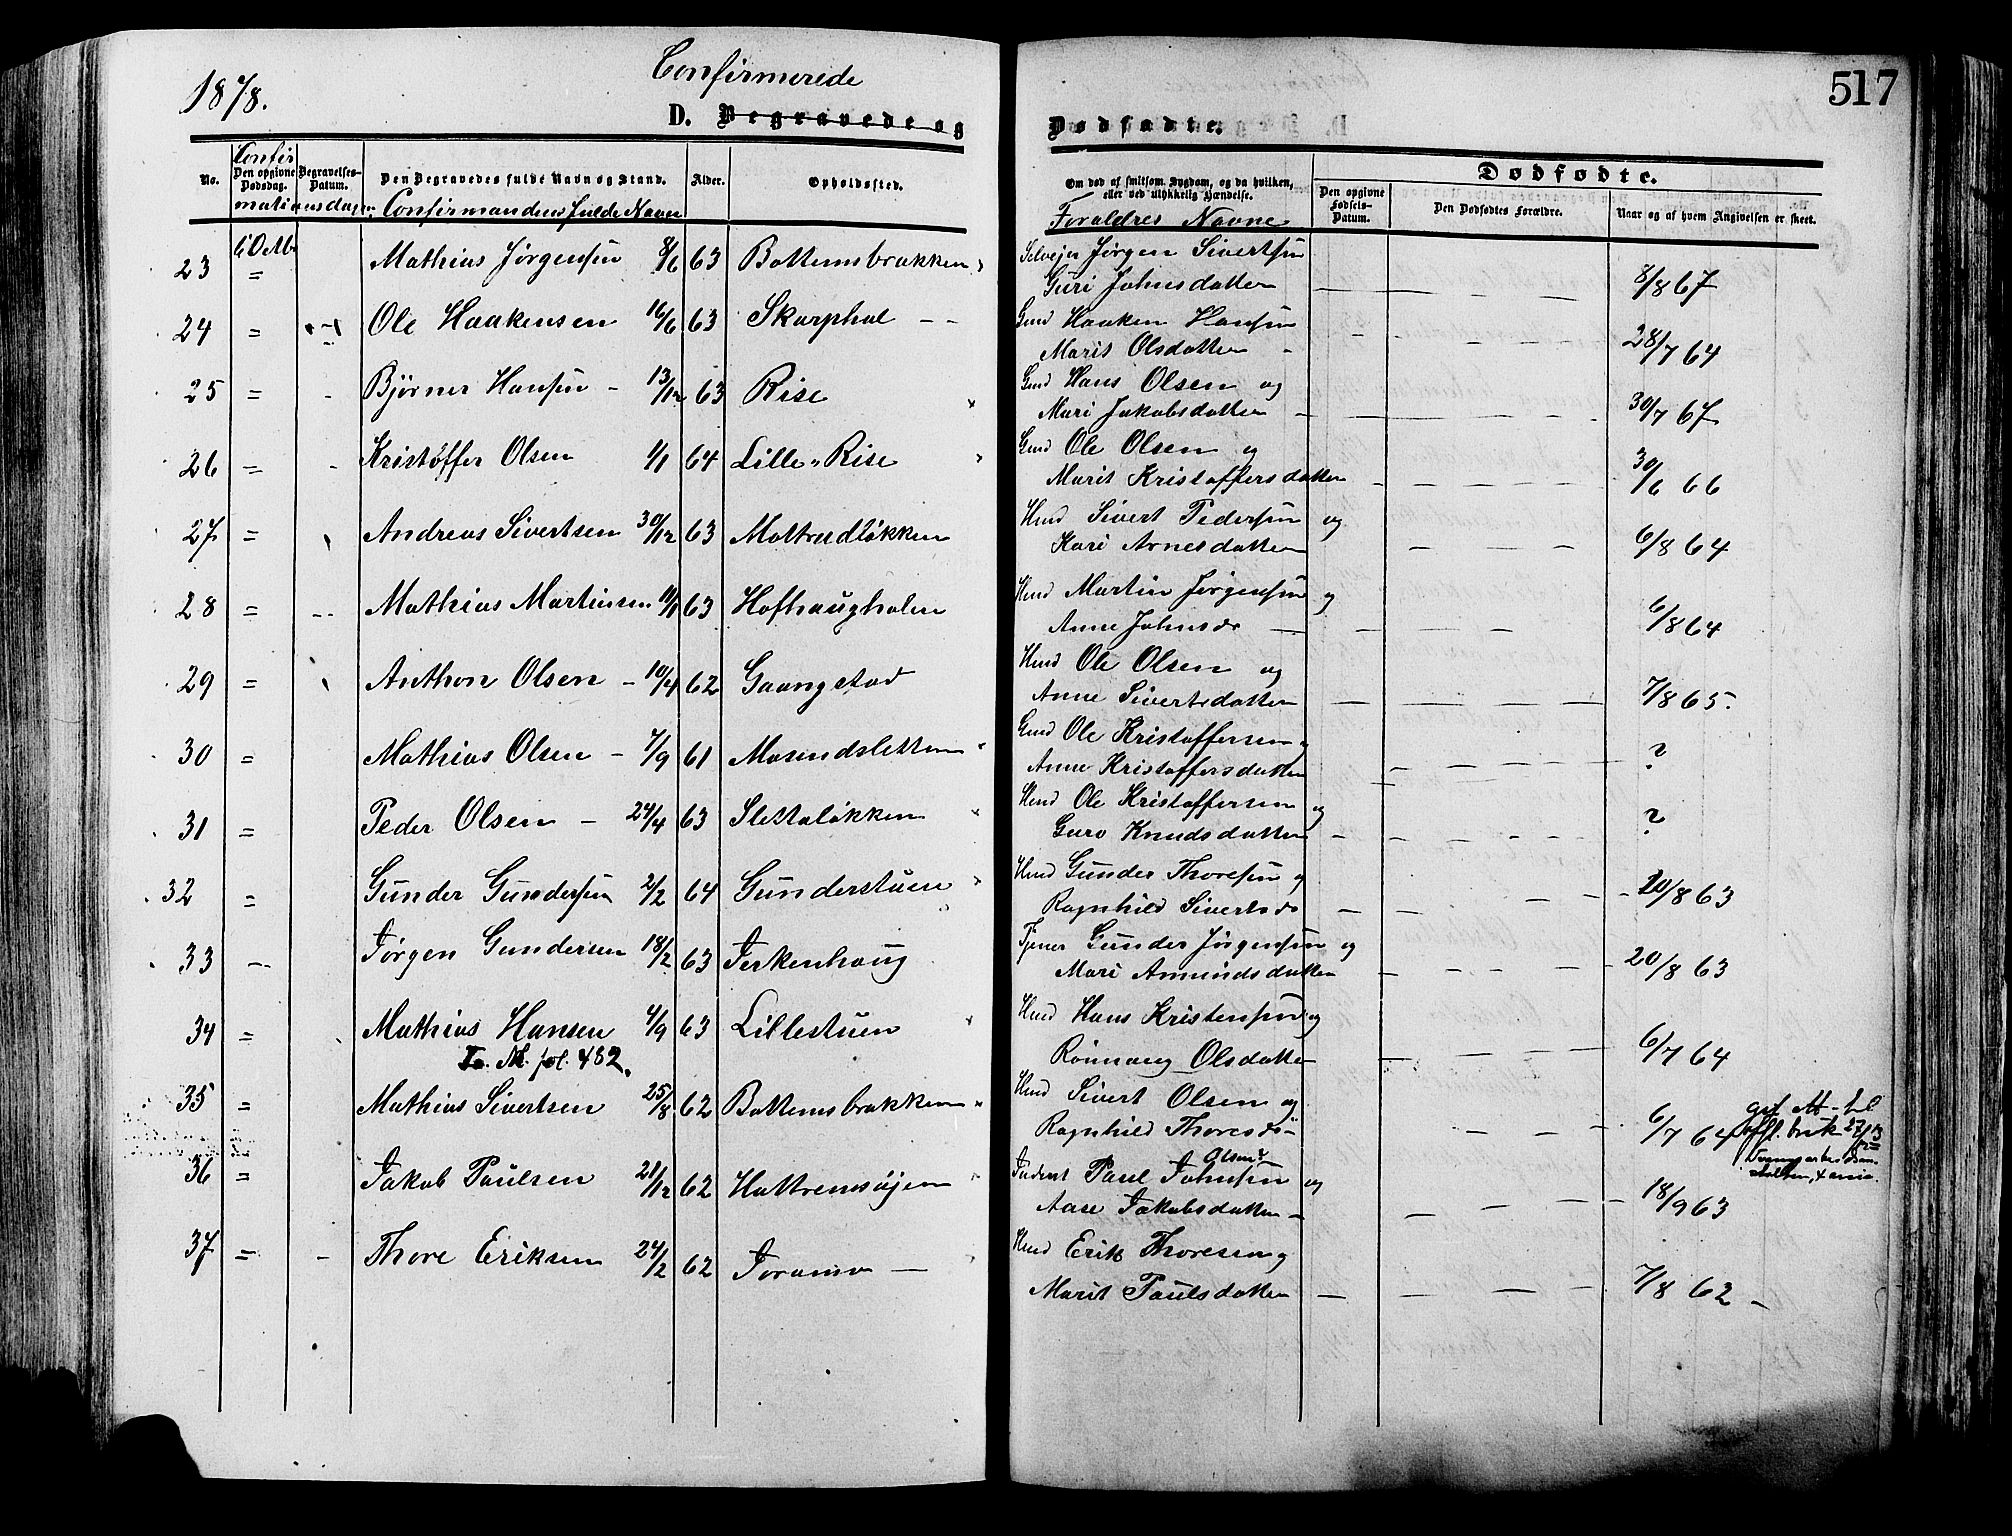 1878.
Confirmerede
D. Begravede og
Dødfødte.
517
No.
Confir
Den opgivne Dødsdag.
mationsdagen
Begravelses-Datum.
Den Begravedes fulde Navn og Stand.
Confirmandens fulde Navn
Alder.
Opholdssted.
Om død af smitsom Sygdom, og da hvilken,
eller ved ulykkelig Hændelse.
Foraldres Navne
Dødfødte.
Den opgivne Fødsels-Datum.
Den Dødfødtes Forældre.
Naar og af hvem Angivelsen er skeet.
23 6 Octb = Mathias Jørgensen 8/6 63 Bottemsbrakken Selvejer Jørgen Sivertsen
Guri Johnsdatter 8/8 67
24 = Ole Haakensen 16/6 63 Skarphol Gmd Haaken Hansen
Marit Olsdatter 28/7 64
25 = Bjørner Hansen 13/12 63 Rise Gmd Hans Olsen og
Mari Jakobsdatter 30/7 67
26 = Kristoffer Olsen 1/1 64 Lille-Rise Gmd Ole Olsen og
Marit Kristoffersdatter 30/6 66
27 = Andreas Sivertsen 30/12 63 Mottrudløkken Hmd Sivert Pedersen og
Kari Arnesdatter 6/8 64
28 = Mathias Martinsen 11/1 63 Hofhaugholen Hmd Martin Jørgensen og
Anne Johnsdr 6/8 64
29 = Anthon Olsen 10/4 62 Gaangstad Hmd Ole Olsen og
Anne Sivertsdatter 7/8 65.
30 = Mathias Olsen 7/9 61 Mosendsletten Gmd Ole Kristoffersen og
Anne Kristoffersdatter ?
31 = Peder Olsen 24/4 63 Slettaløkken Hmd Ole Kristoffersen og
Guro Knudsdatter ?
32 = Gunder Gundersen 2/2 64 Gunderstuen Hmd Gunder Thoresen og
Ragnhild Sivertsdr 20/8 63
33 Jørgen Gundersen 18/2 63 Jerkenhaug Tjener Gunder Jørgensen og
Mari Amundsdatter 20/8 63
34 = Mathias Hansen 4/9 63 Lillestuen Hmd Hans Kristensen og
Rønnaug Olsdatter 6/7 64
M. fol. 482.
35 = Mathias Sivertsen 25/8 62 Bottemsbrakken Hmd Sivert Olsen og
Ragnhild Thoresdr 6/7 64
36 = Jakob Paulsen 21/12 62 Hattremsøjen Inderst Paul Johnsen og
Olsen?
Aase Jakobsdatter 18/9 63
37 = Thore Eriksen 24/2 62 Joramo Hmd Erik Thoresen og
Marit Paulsdatter 7/8 62